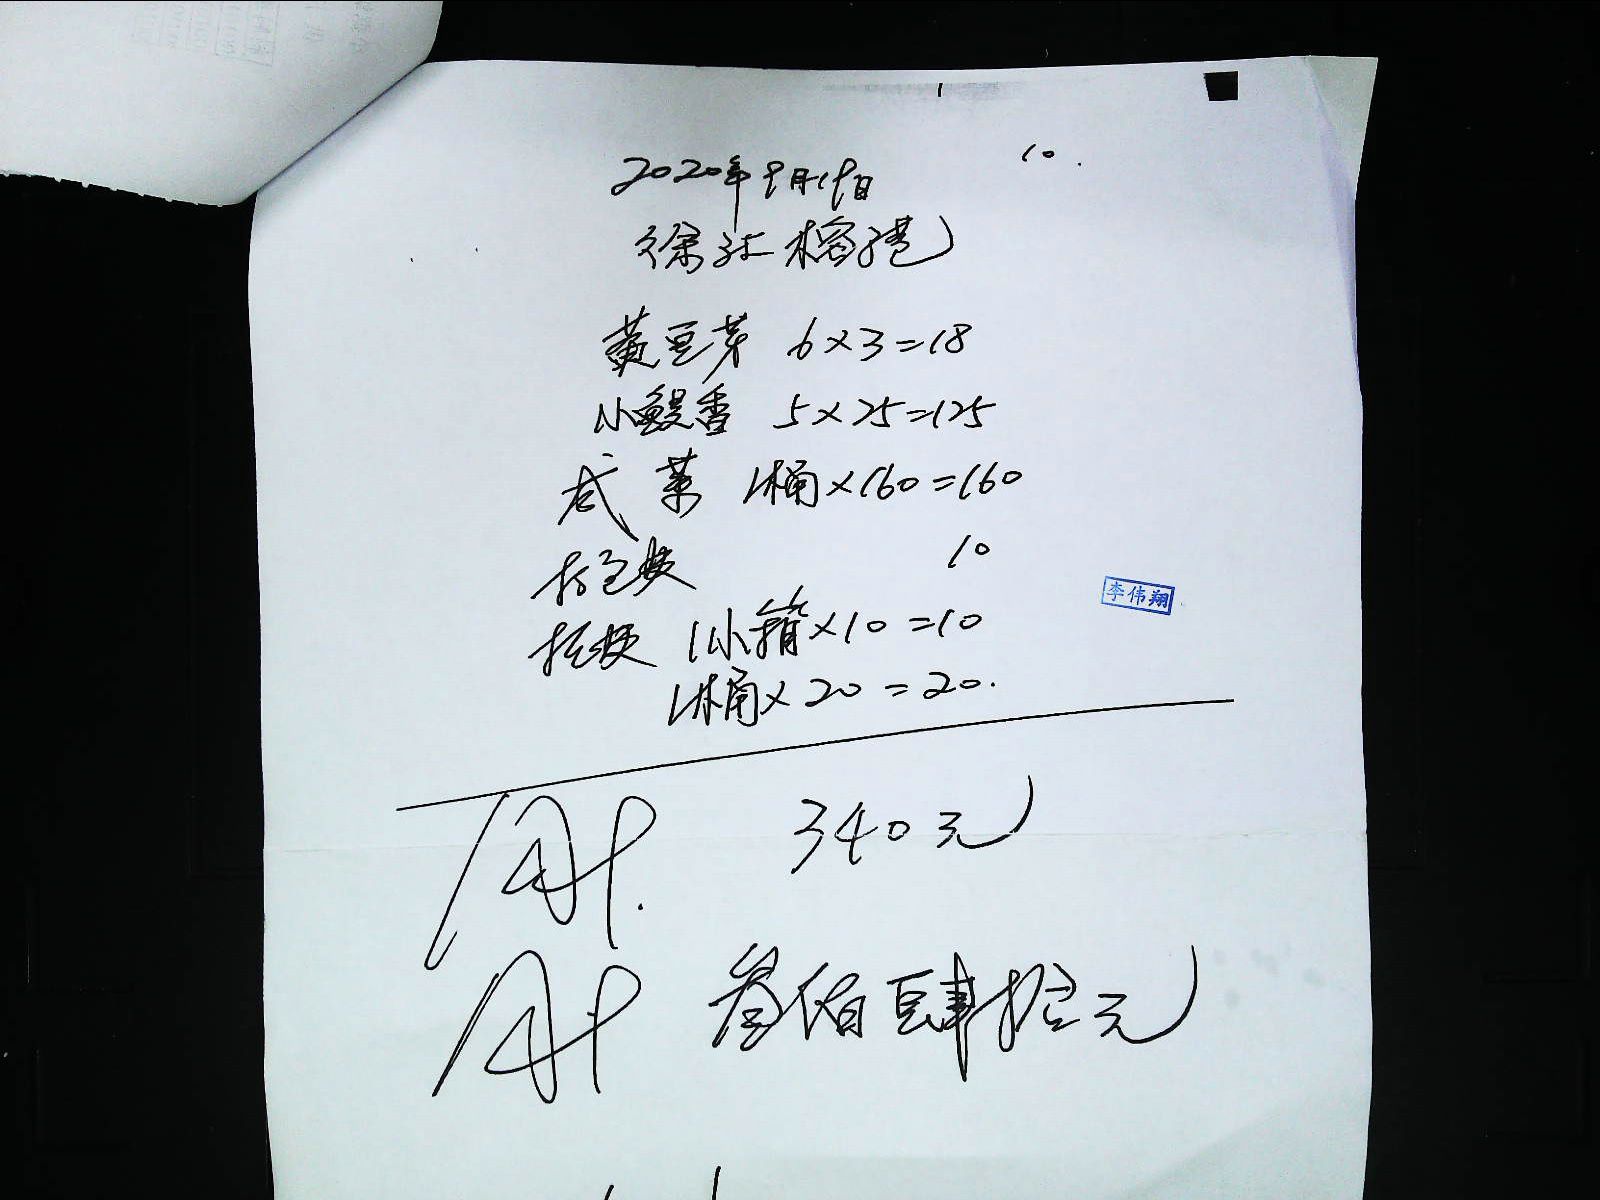 10.
2020年9月19日
徐江榕港
黄豆芽 6×3=18
小鳗香 5×25=125
咸菜 1桶×160=160
10
李伟翔
1小箱×10=10
1桶×20=20.
340元
叁佰肆拾元